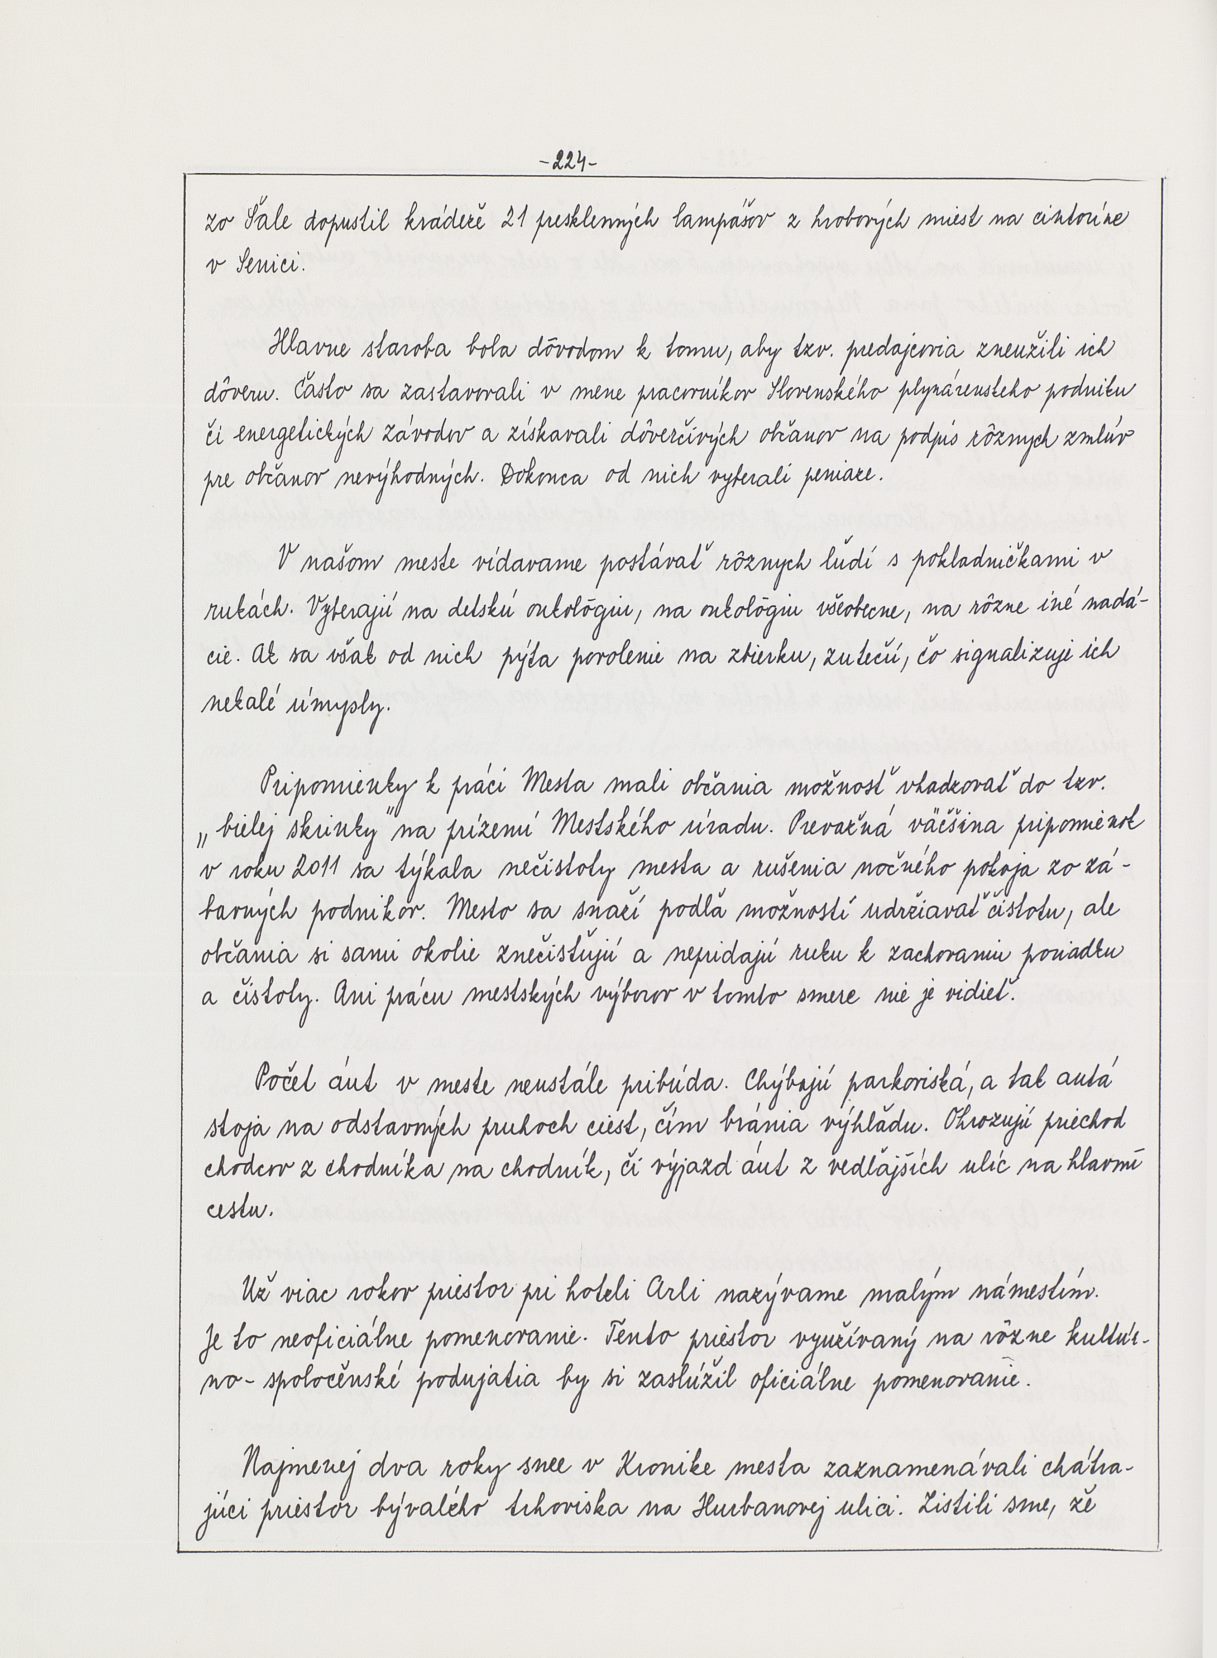 -224-
zo Šale dopustil krádeže 21 presklenných lampášov z hrobových miest na cintoríne
v Senici.
Hlavne staroba bola dôvodom k tomu, aby tzv. predajcovia zneužili ich
dôveru. Často sa zastavovali v mene pracovníkov Slovenského plynárenského podniku
či energetických závodov a získavali dôverčivých občanov na podpis rôznych zmlúv
pre občanov nevýhodných. Dokonca od nich vyberali peniaze.
V našom meste vídavame postávať rôznych ľudí s pokladničkami v
rukách. Vyberajú na detskú onkológiu, na onkológiu všeobecne, na rôzne iné nadá-
cie. Ak sa však od nich pýta povolenie na zbierku, zutečú, čo signalizuje ich
nekalé úmysly.
Pripomienky k práci Mesta mali občania možnosť vhadzovať do tzv.
„bielej skrinky" na prízemí Mestského úradu. Prevažná väčšina pripomienok
v roku 2011 sa týkala nečistoty mesta a rušenia nočného pokoja zo zá-
bavných podnikov. Mesto sa snaží podľa možností udržiavať čistotu, ale
občania si sami okolie znečisťujú a nepridajú ruku k zachovaniu poriadku
a čistoty. Ani prácu mestských výborov v tomto smere nie je vidieť.
Počet áut v meste neustále pribúda. Chýbajú parkoviská, a tak autá
stoja na odstavných pruhoch ciest, čím bránia výhľadu. Ohrozujú priechod
chodcov z chodníka na chodník, či výjazd áut z vedľajších ulíc na hlavnú
cestu.
Už viac rokov priestor pri hoteli Arli nazývame malým námestím.
Je to neoficiálne pomenovanie. Tento priestor využívaný na rôzne kultúr-
no-spoločenské podujatia by si zaslúžil oficiálne pomenovanie.
Najmenej dva roky sme v Kronike mesta zaznamenávali chátra-
júci priestor bývalého trhoviska na Hurbanovej ulici. Zistili sme, že